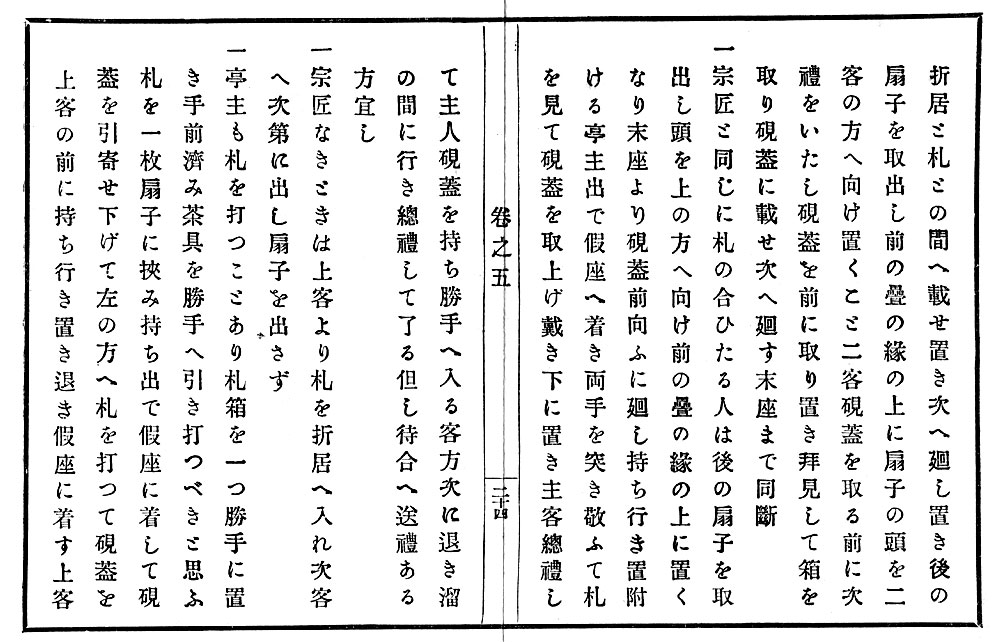 折居と札との間へ載せ置き次へ廻し置き後の
扇子を取出し前の疊の緣の上に扇子の頭を二
客の方へ向け置くこと二客硯蓋を取る前に次
禮をいたし硯蓋を前に取り置き拜見して箱を
取り硯蓋に載せ次へ廻す末座まで同斷
一宗匠と同じに札の合ひたる人は後の扇子を取
出し頭を上の方へ向け前の疊の緣の上に置く
なり末座より硯蓋前向ふに廻し持ち行き置附
ける亭主出で假座へ着き両手を突き敬ふて札
を見て硯蓋を取上げ戴き下に置き主客總禮し
卷之五
二十四
て主人硯蓋を持ち勝手へ入る客方次に退き溜
の間に行き總禮して了る但し待合へ送禮ある
方宜し
一宗匠なきときは上客より札を折居へ入れ次客
へ次第に出し扇子を出さず
一亭主も札を打つことあり札箱を一つ勝手に置
き手前濟み茶具を勝手へ引き打つべきと思ふ
札を一枚扇子に挾み持ち出で假座に着して硯
蓋を引寄せ下げて左の方へ札を打つて硯蓋を
上客の前に持ち行き置き退き假座に着す上客